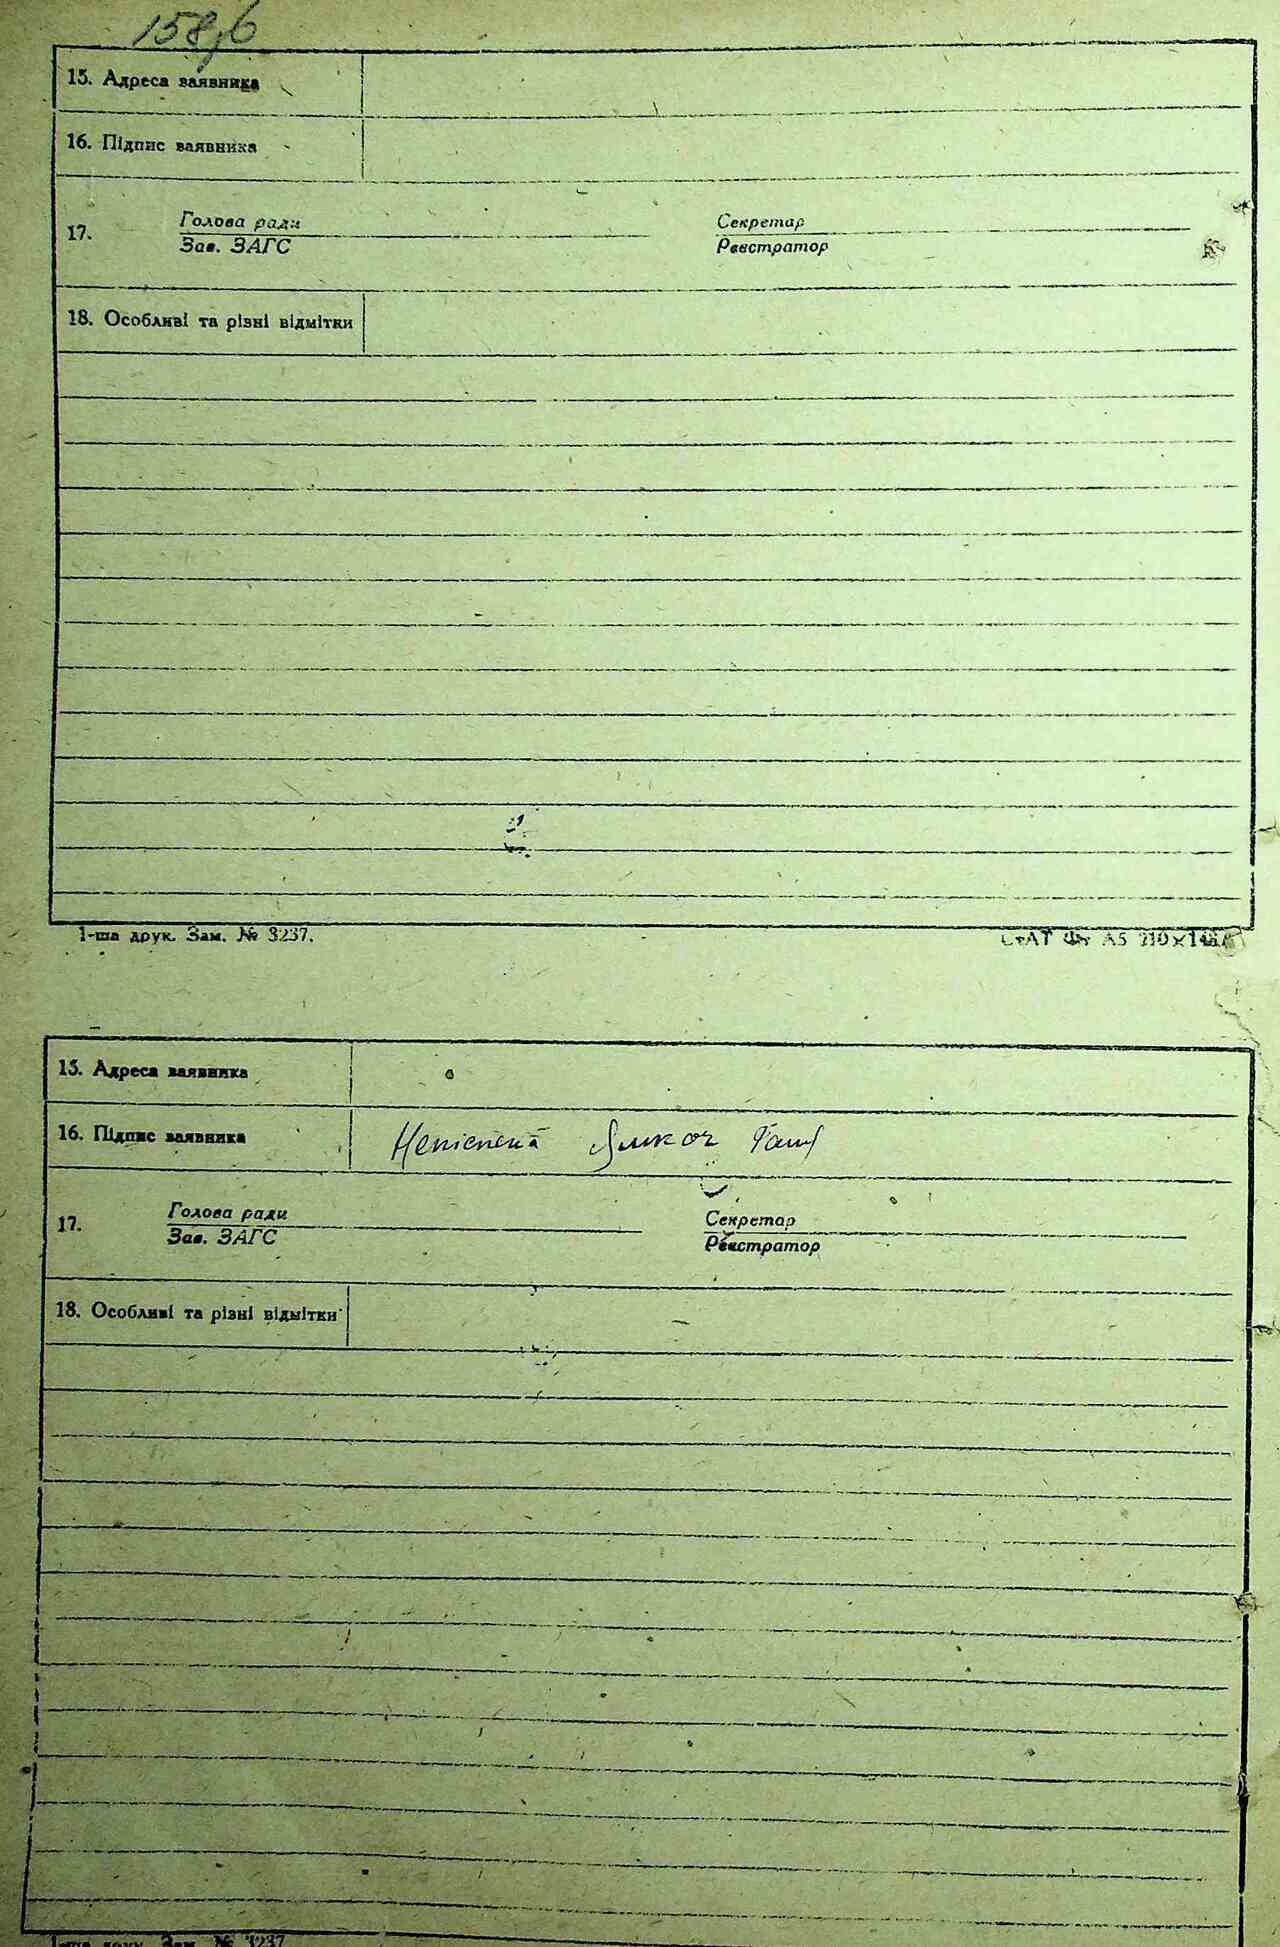 15. Адреса заявника
16. Підпис заявника
17. Голова ради Секретар
Зав. ЗАГС Реєстратор
18. Особливі та різні відмітки
1-ша друк. Зам. № 3237.
15. Адреса заявника
16. Підпис заявника
17. Голова ради Секретар
Зав. ЗАГС Реєстратор
18. Особливі та різні відмітки
1-ша друк. Зам. № 3237